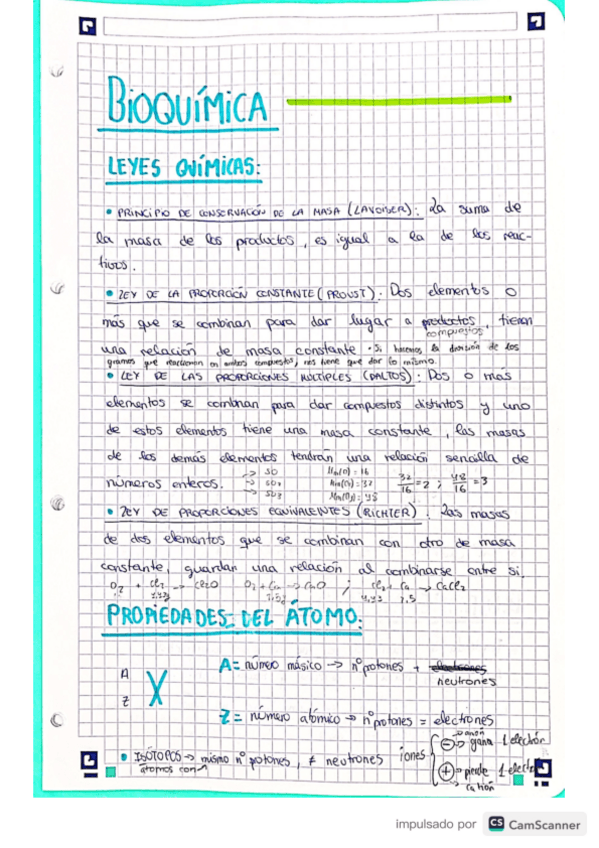 BIOQUÍMICA
LEYES QUÍMICAS:
• PRINCIPIO DE CONSERVACIÓN DE LA MASA (LAVOISER): La suma de
la masa de los productos, es igual a la de los reac-
tivos.
• LEY DE LA PROPORCIÓN CONSTANTE (PROUST): Dos elementos o
más que se combinan para dar lugar a productos, tienen
compuestos
una relación de masa constante • Si hacemos la división de los
gramos que reaccionan en ambos compuestos, nos tiene que dar lo mismo.
• LEY DE LAS PROPORCIONES MULTIPLES (DALTOS): Dos o más
elementos se combinan para dar compuestos distintos y uno
de estos elementos tiene una masa constante, las masas
de los demás elementos tendrán una relación sencilla de
números enteros. → SO m(O) = 16 32/16 = 2 ; 48/16 = 3
→ SO2 m(O2) = 32
→ SO3 m(O3) = 48
• LEY DE PROPORCIONES EQUIVALENTES (RICHTER): Las masas
de dos elementos que se combinan con otro de masa
constante, guardan una relación al combinarse entre si.
O2 + Cl2 → Cl2O O2 + Ca → CaO ; Cl2 + Ca → CaCl2
PROPIEDADES DEL ÁTOMO:
A = número másico → nº protones + electrones
neutrones
A
Z X
Z = número atómico → nº protones = electrones
• ISÓTOPOS → mismo nº protones, ≠ neutrones
átomos con
iones
anión
⊖ → gana 1 electrón
⊕ → pierde 1 electrón
→ catión
impulsado por CS CamScanner